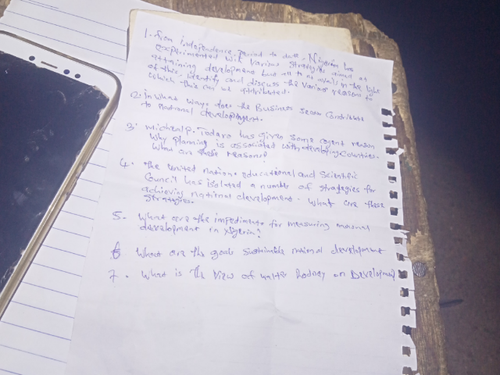 1. From independence period to date, Nigeria has
experimented with various strategies aimed at
attaining development but to no avail. in the light
of this, identify and discuss the various reasons to
which this can be attributed.
2. In what ways does the Business sector contribute
to national development.
3. micheal P. Todaro has given some cogent reason
why planning is associated with developing countries.
What are these reasons?
4. The United nations educational and Scientific
Council has isolated a number of strategies for
achieving national development. What are these
strategies
5. What are the impediments for measuring national
development in Nigeria?
6 What are the goals sustainable national development
7. What is the view of walter Rodney on Development